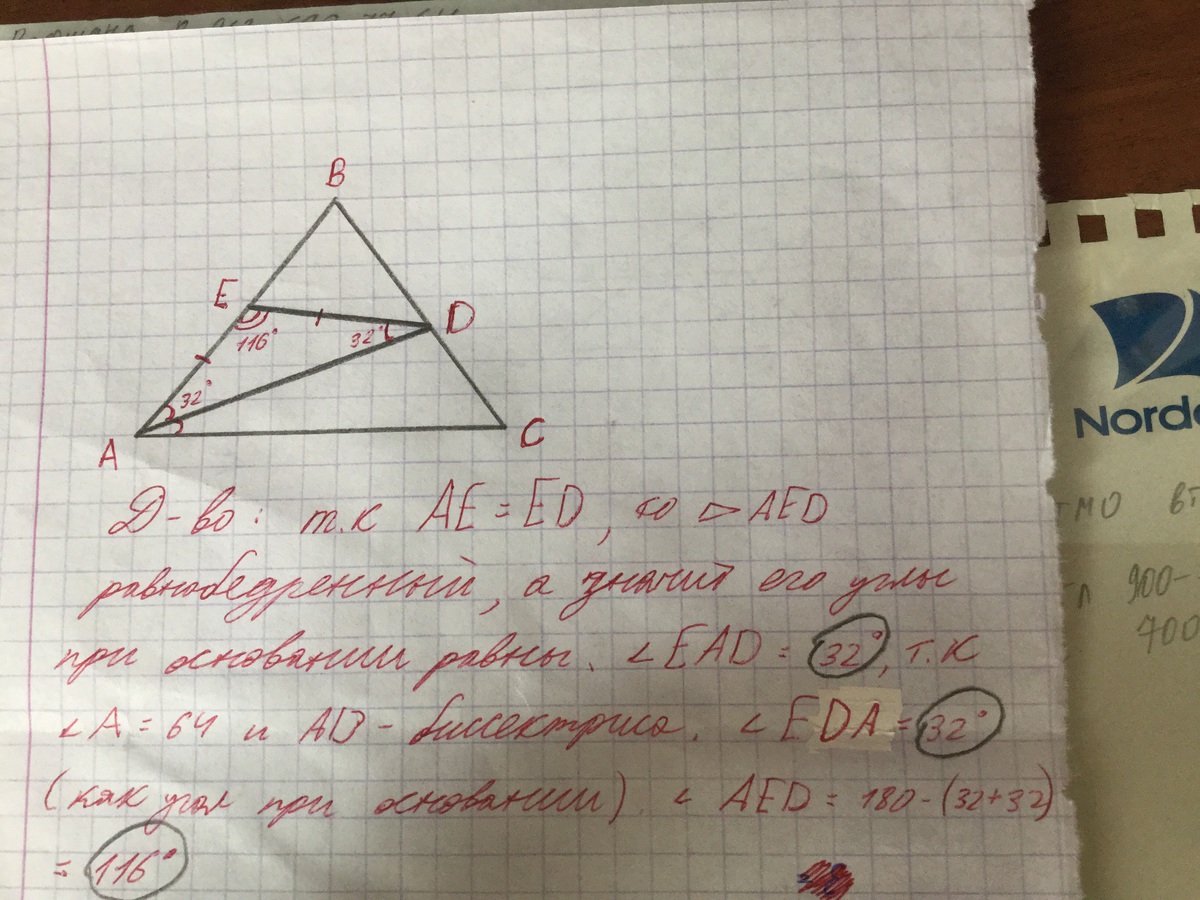 B
E
D
116°
32°
32°
A
C
Д-во: т.к AE = ED, то ▷ AED
равнобедренный, а значит его углы
при основании равны. ∠EAD = 32°, т.к
∠A = 64 и AD - биссектриса. ∠EDA = 32°
(как угол при основании) ∠ AED = 180-(32+32)
= 116°
Norde
тмо вт
900-
700